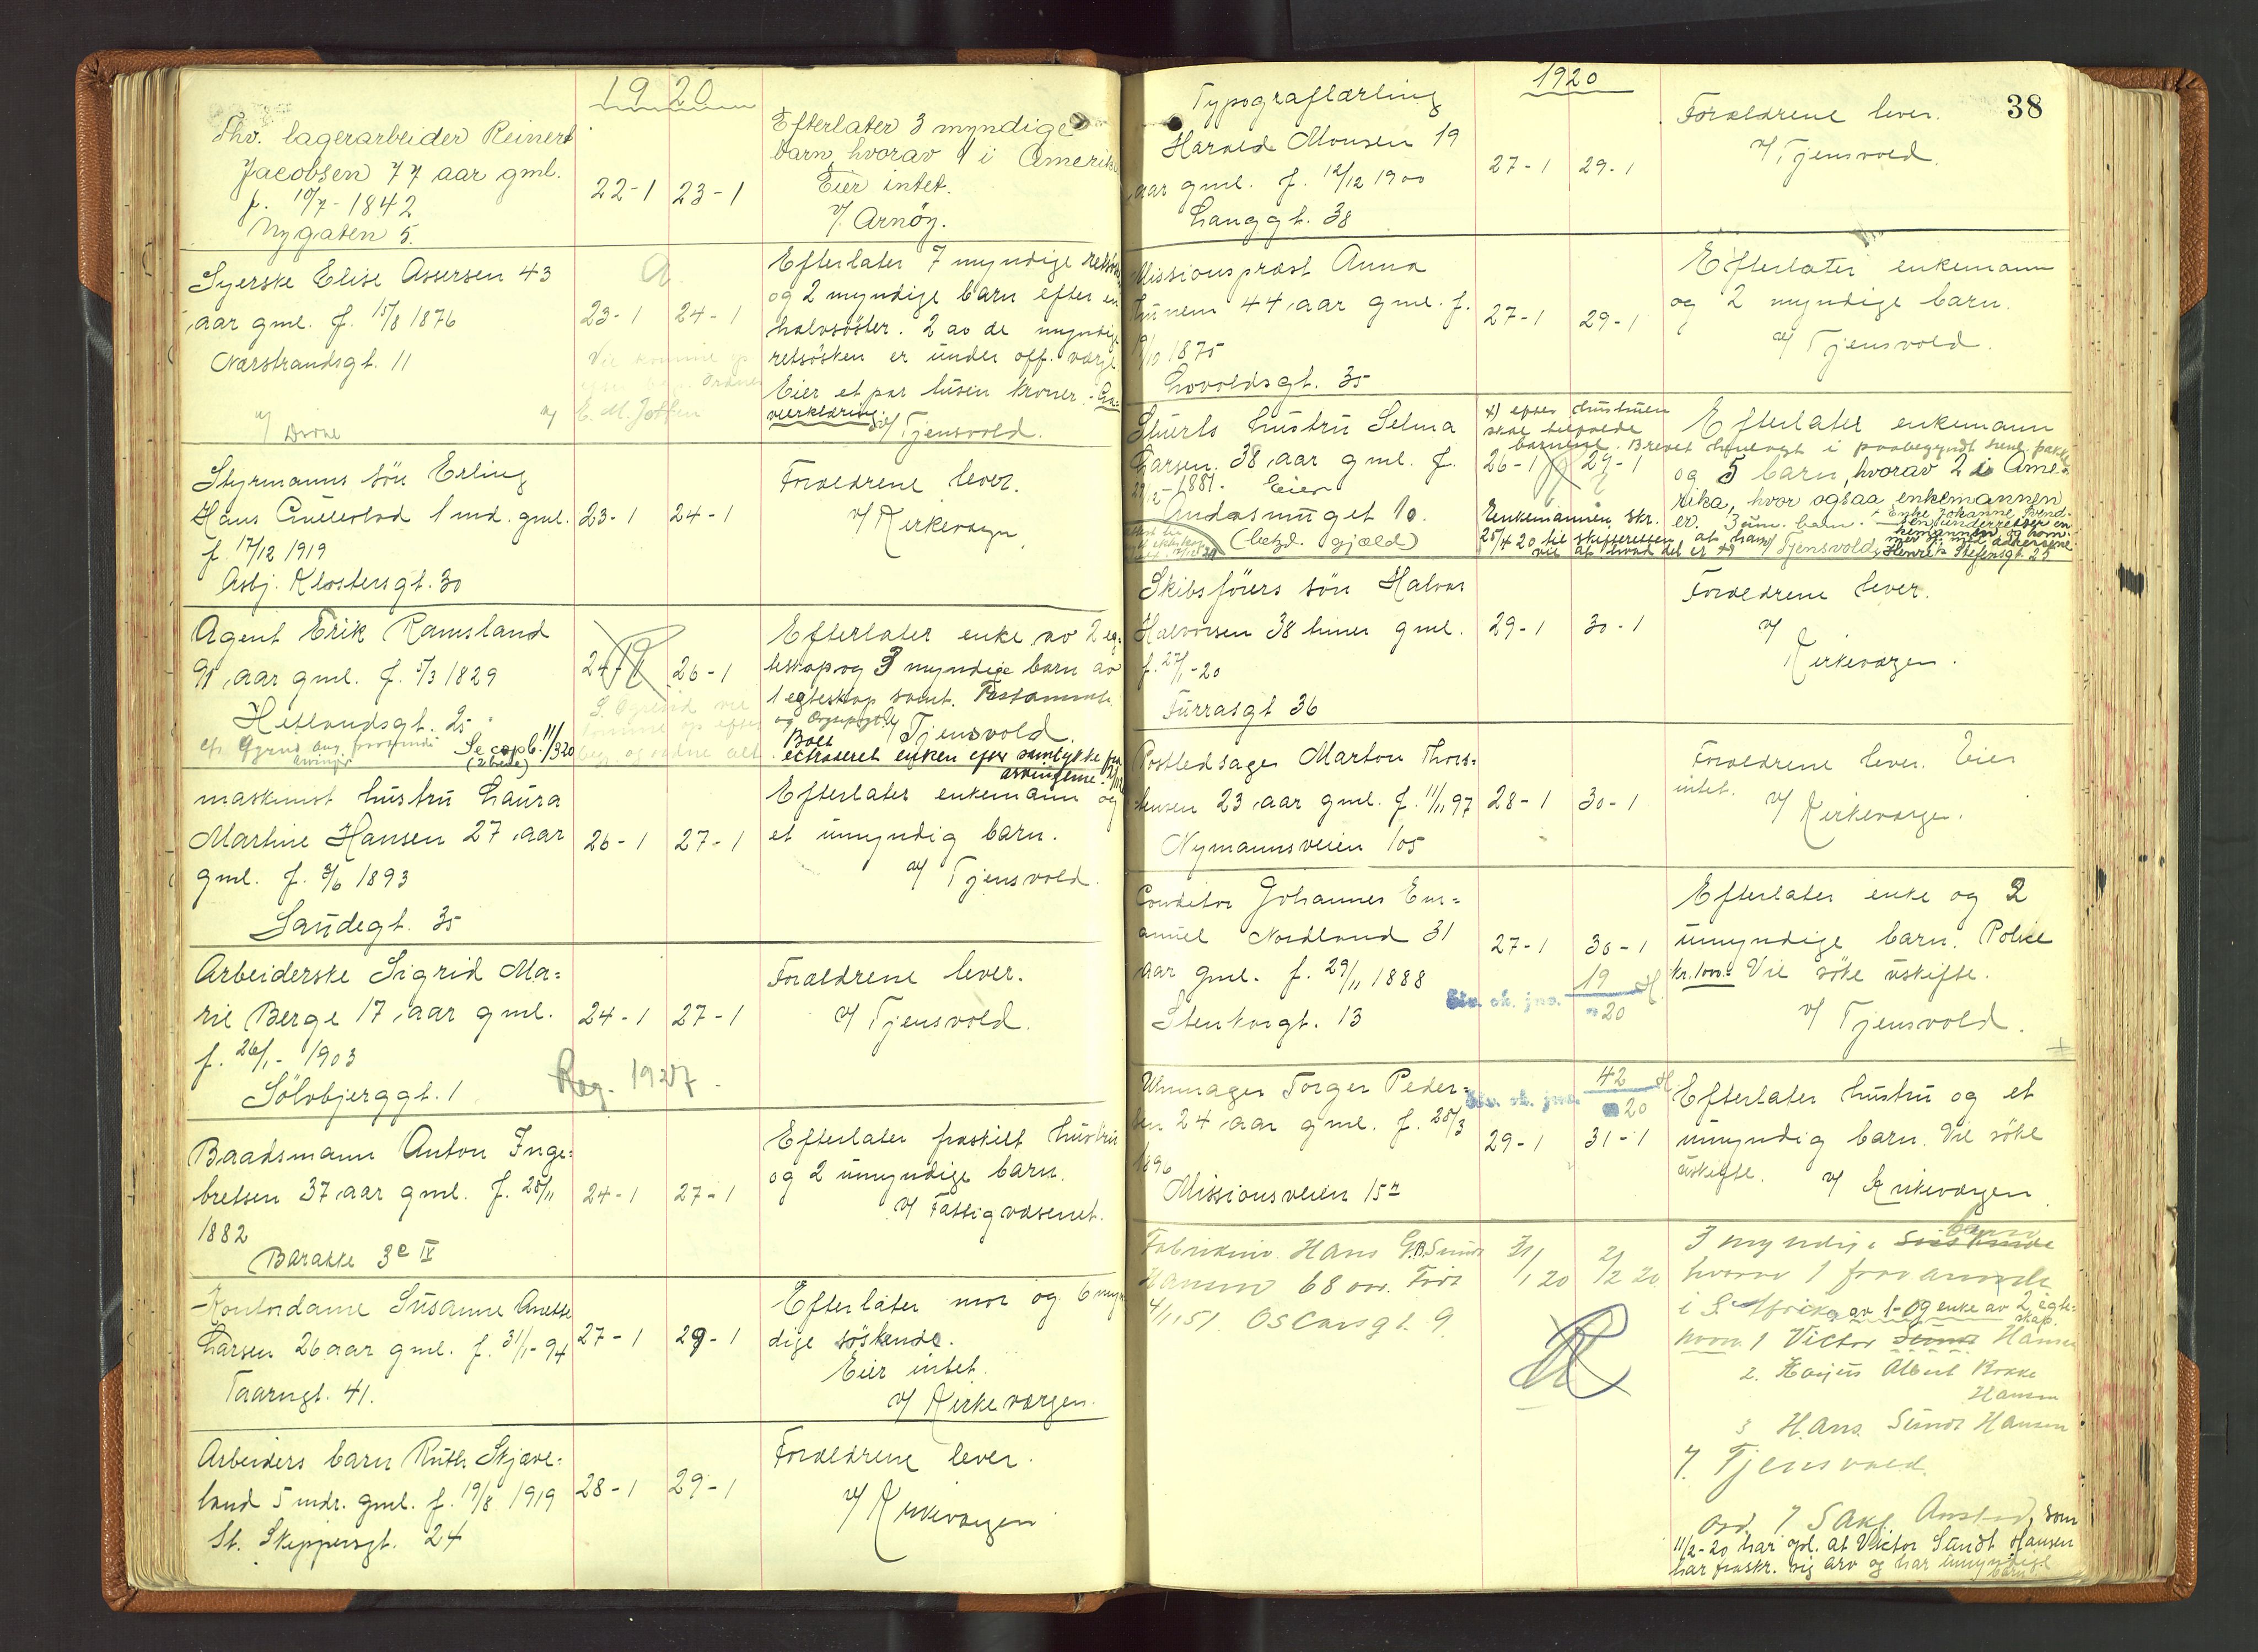 1920
Fhv. lagerarbeider Reinert
Jacobsen 77 aar gml.
f. 10/7-1842
Nygaten 5.
22-1 23-1
Efterlater 3 myndige
barn, hvorav 1 i Amerika
Eier intet.
v/ Arnöy.
Syerske Elise Assersen 43
aar gml. f. 15/8 1876
Nærstrandsgt. 11
a
23-1 24-1
Vil komme op
E. M.
Efterlater 7 myndige
og 2 myndige barn efter en
halvsöster. 2 av de myndige
retsösken er under off. værge
Eier et par tusen kroner.
v/ Tjensvold.
Styrmanns sön Erling
Hans
1 md. gml.
f. 17/12 1919
Asbj. Klostersgt. 30
23-1 24-1
Forældrene lever.
v/ Kirkevergen.
Agent Erik Ramsland
91 aar gml. f. 5/3 1829
Hetlandsgt. 25
Se copb. 11/3 20
24-1 26-1
Efterlater enke av 2 eg-
teskap og 3 myndige barn av
1 egteskap samt. Testamente
v/ Tjensvold.
Boet
extraderet enken efter samtykke fra
arvingerne.
maskinist hustru Laura
Martine Hansen 27 aar
gml. f. 3/6 1893
Sandegt. 35
26-1 27-1
Efterlater enkemann og
et umyndig barn.
v/ Tjensvold.
Arbeiderske Sigrid Ma-
rie Berge 17 aar gml.
f. 26/1-1903
Sölvbjerggt. 1
24-1 27-1
Reg. 1927.
Forældrene lever.
v/ Tjensvold.
Baadsmann Anton Inge-
bretsen 37 aar gml. f. 28/11
1882
Barakke 3e IV
24-1 27-1
Efterlater fraskilt hustru
og 2 umyndige barn.
v/ Fattigvæsenet.
Kontordame Susanne Anette
Larsen 26 aar gml. f. 31/1-94
Taarngt. 41.
27-1 29-1
Efterlater mor og 6 myn-
dige söskende.
Eier intet.
v/ Kirkevergen.
Arbeiders barn Ruth Skjæve-
land 5 mdr. gml. f. 19/8 1919
St. Skippersgt. 24
28-1 29-1
Forældrene lever.
v/ Kirkevergen
1920
38
Typograflærling
Harald Monsen 19
aar gml. f. 12/12 1900
Langgt. 38
27-1 29-1
Forældrene lever.
v/ Tjensvold.
Missionsprest Anna
44 aar gml. f.
1875
Lovoldsgt. 35
27-1 29-1
Efterlater enkemann
og 2 myndige barn.
v/ Tjensvold.
Stuerts hustru Selma
Larsen. 38 aar gml. f.
1881. Eier
Andasmuget 10.
(betzd. gjæld)
x) efter hustruen
skal tilfalde
barnene. Brevet henlagt i paabegyndt
26-1 29-1
Enkemannen skr.
25/4 20 til skifteretten at han
vil at hvad det er x)
Efterlater enkemann
og 5 barn, hvorav 2 i Ame-
rika, hvor ogsaa enkemannen
er. 3 um. barn.
Enke Johanne Svend-
sen underretter en-
kemannen og kom-
v/ Tjensvold
Henrik Steffensgt. 25
Skibsförers sön Halvor
Halvorsen 38 timer gml.
f. 27/1-20
Furrasgt 36
29-1 30-1
Forældrene lever.
v/
Kirkevergen.
Postledsager Marton Thors-
tensen 23 aar gml. f. 11/11 97
Nymannsveien 105
28-1 30-1
Forældrene lever. Eier
intet.
v/ Kirkeverge.
Conditor Johannes Em-
anuel Nordland 31
aar gml. f. 29/11 1888
Stenkargt. 13
27-1 30-1
19
20
Efterlater enke og 2
umyndige barn. Police
kr. 1000.- Vil söke uskifte.
v/ Tjensvold.
Urmager Torger Peder-
sen 24 aar gml. f. 28/3
1896
Missionsveien 15a
42
20
29-1 31-1
Efterlater hustru og et
umyndig barn. Vil söke
uskifte. v/ Kirkevergen
Hans G.B. Sundt
Hansen 68 aar. Född
4/11 51. Oscarsgt. 9.
31/1 20 2/2 20
3 myndige barn
hvorav 1
i S. Afrika av 1- og enke av 2 egte-
skap.
hvorav 1 Victor Sundt Hansen
2. Albert
Hansen
3 Hans Sundt Hansen
v. Tjensvold.
som
11/2-20 har opl. at Victor Sundt Hansen
har fraskr. sig arv og har umyndige
barn